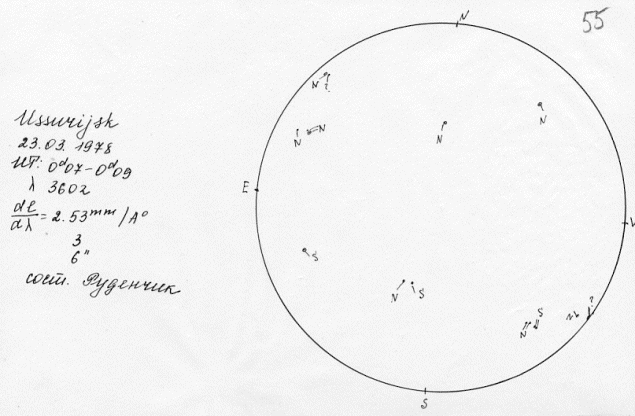 55
Ussurijsk
23.03.1978
UT: 0ᵈ07-0ᵈ09
λ 3602
dl/dλ = 2.53 mm/A°
3
6"
сост. Руденчик
N
N ?
N N
N
N
E
W
S
N S
N S
N ?
S